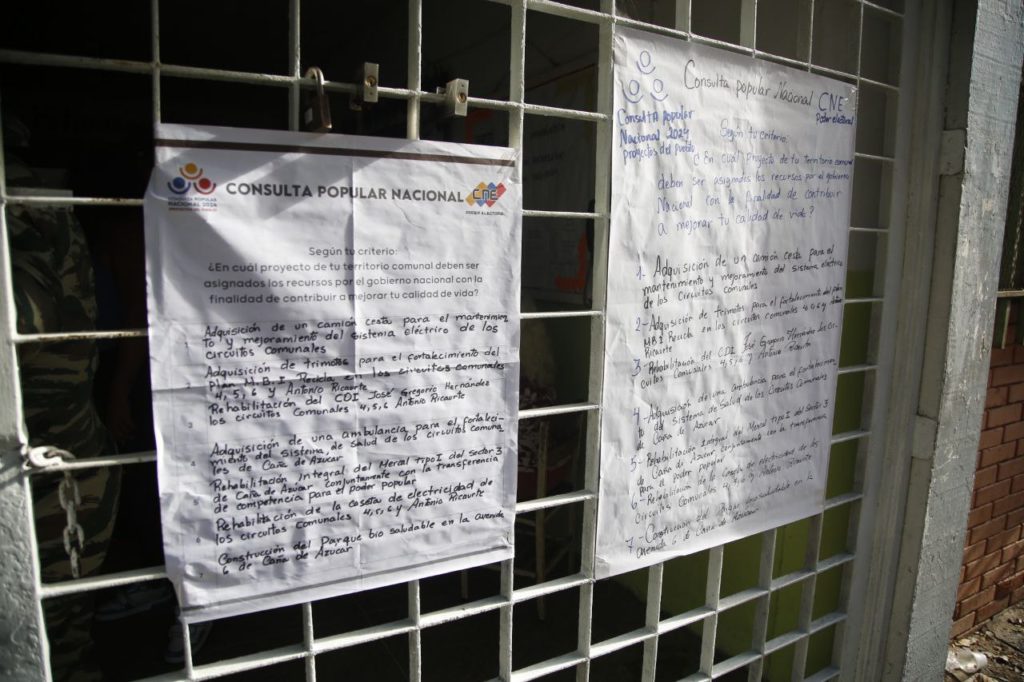 CONSULTA POPULAR
NACIONAL 2024
CONSULTA POPULAR NACIONAL
CNE
PODER ELECTORAL
Según tu criterio:
¿En cuál proyecto de tu territorio comunal deben ser
asignados los recursos por el gobierno nacional con la
finalidad de contribuir a mejorar tu calidad de vida?
Adquisición de un camión cesta para el mantenimien
to y mejoramiento del sistema eléctrico de los
circuitos Comunales
Adquisición de Trimotos para el fortalecimiento del
Plan M.B.I Recicla en los circuitos comunales
4, 5, 6 y Antonio Ricaurte
Rehabilitación del CDI José Gregorio Hernández
los circuitos Comunales 4, 5, 6 Antonio Ricaurte
Adquisición de una ambulancia para el fortaleci-
miento del sistema de salud de los circuitos comuna
les de Caña de Azúcar
Rehabilitación Integral del Mercal tipo I del Sector 3
de Caña de Azúcar conjuntamente con la transferencia
de competencia para el poder popular
Rehabilitación de la caseta de electricidad de
los circuitos comunales 4, 5, 6 y Antonio Ricaurte
Construcción del Parque bio saludable en la avenida
6 de Caña de Azúcar
Consulta popular Nacional
CNE
Poder electoral
Consulta popular
Nacional 2024
proyectos del pueblo
Según tu criterio:
¿En cuál Proyecto de tu territorio comunal
deben ser asignados los recursos por el gobierno
Nacional con la finalidad de contribuir
a mejorar tu calidad de vida?
1- Adquisición de un camión cesta para el
mantenimiento y mejoramiento del sistema eléctrico
de los Circuitos comunales
2- Adquisición de Trimotos para el fortalecimiento del plan
MBI Recicla en los circuitos comunales 4, 5, 6 y
Ricaurte
3- Rehabilitación del CDI José Gregorio Hernández los Cir-
cuitos Comunales 4, 5, 6 y Antonio Ricaurte
4- Adquisición de una Ambulancia para el fortalecimien
to del sistema de salud de los Circuitos Comunales
de Caña de Azúcar
5- Rehabilitación Integral del Mercal tipo I del Sector 3
de Caña de Azúcar conjuntamente con la transferencia
para el poder popular
6- Rehabilitación de la caseta de electricidad de los
circuitos Comunales 4, 5, 6 y Antonio Ricaurte
7- Construcción del Parque biosaludable en la
avenida 6 de Caña de Azúcar